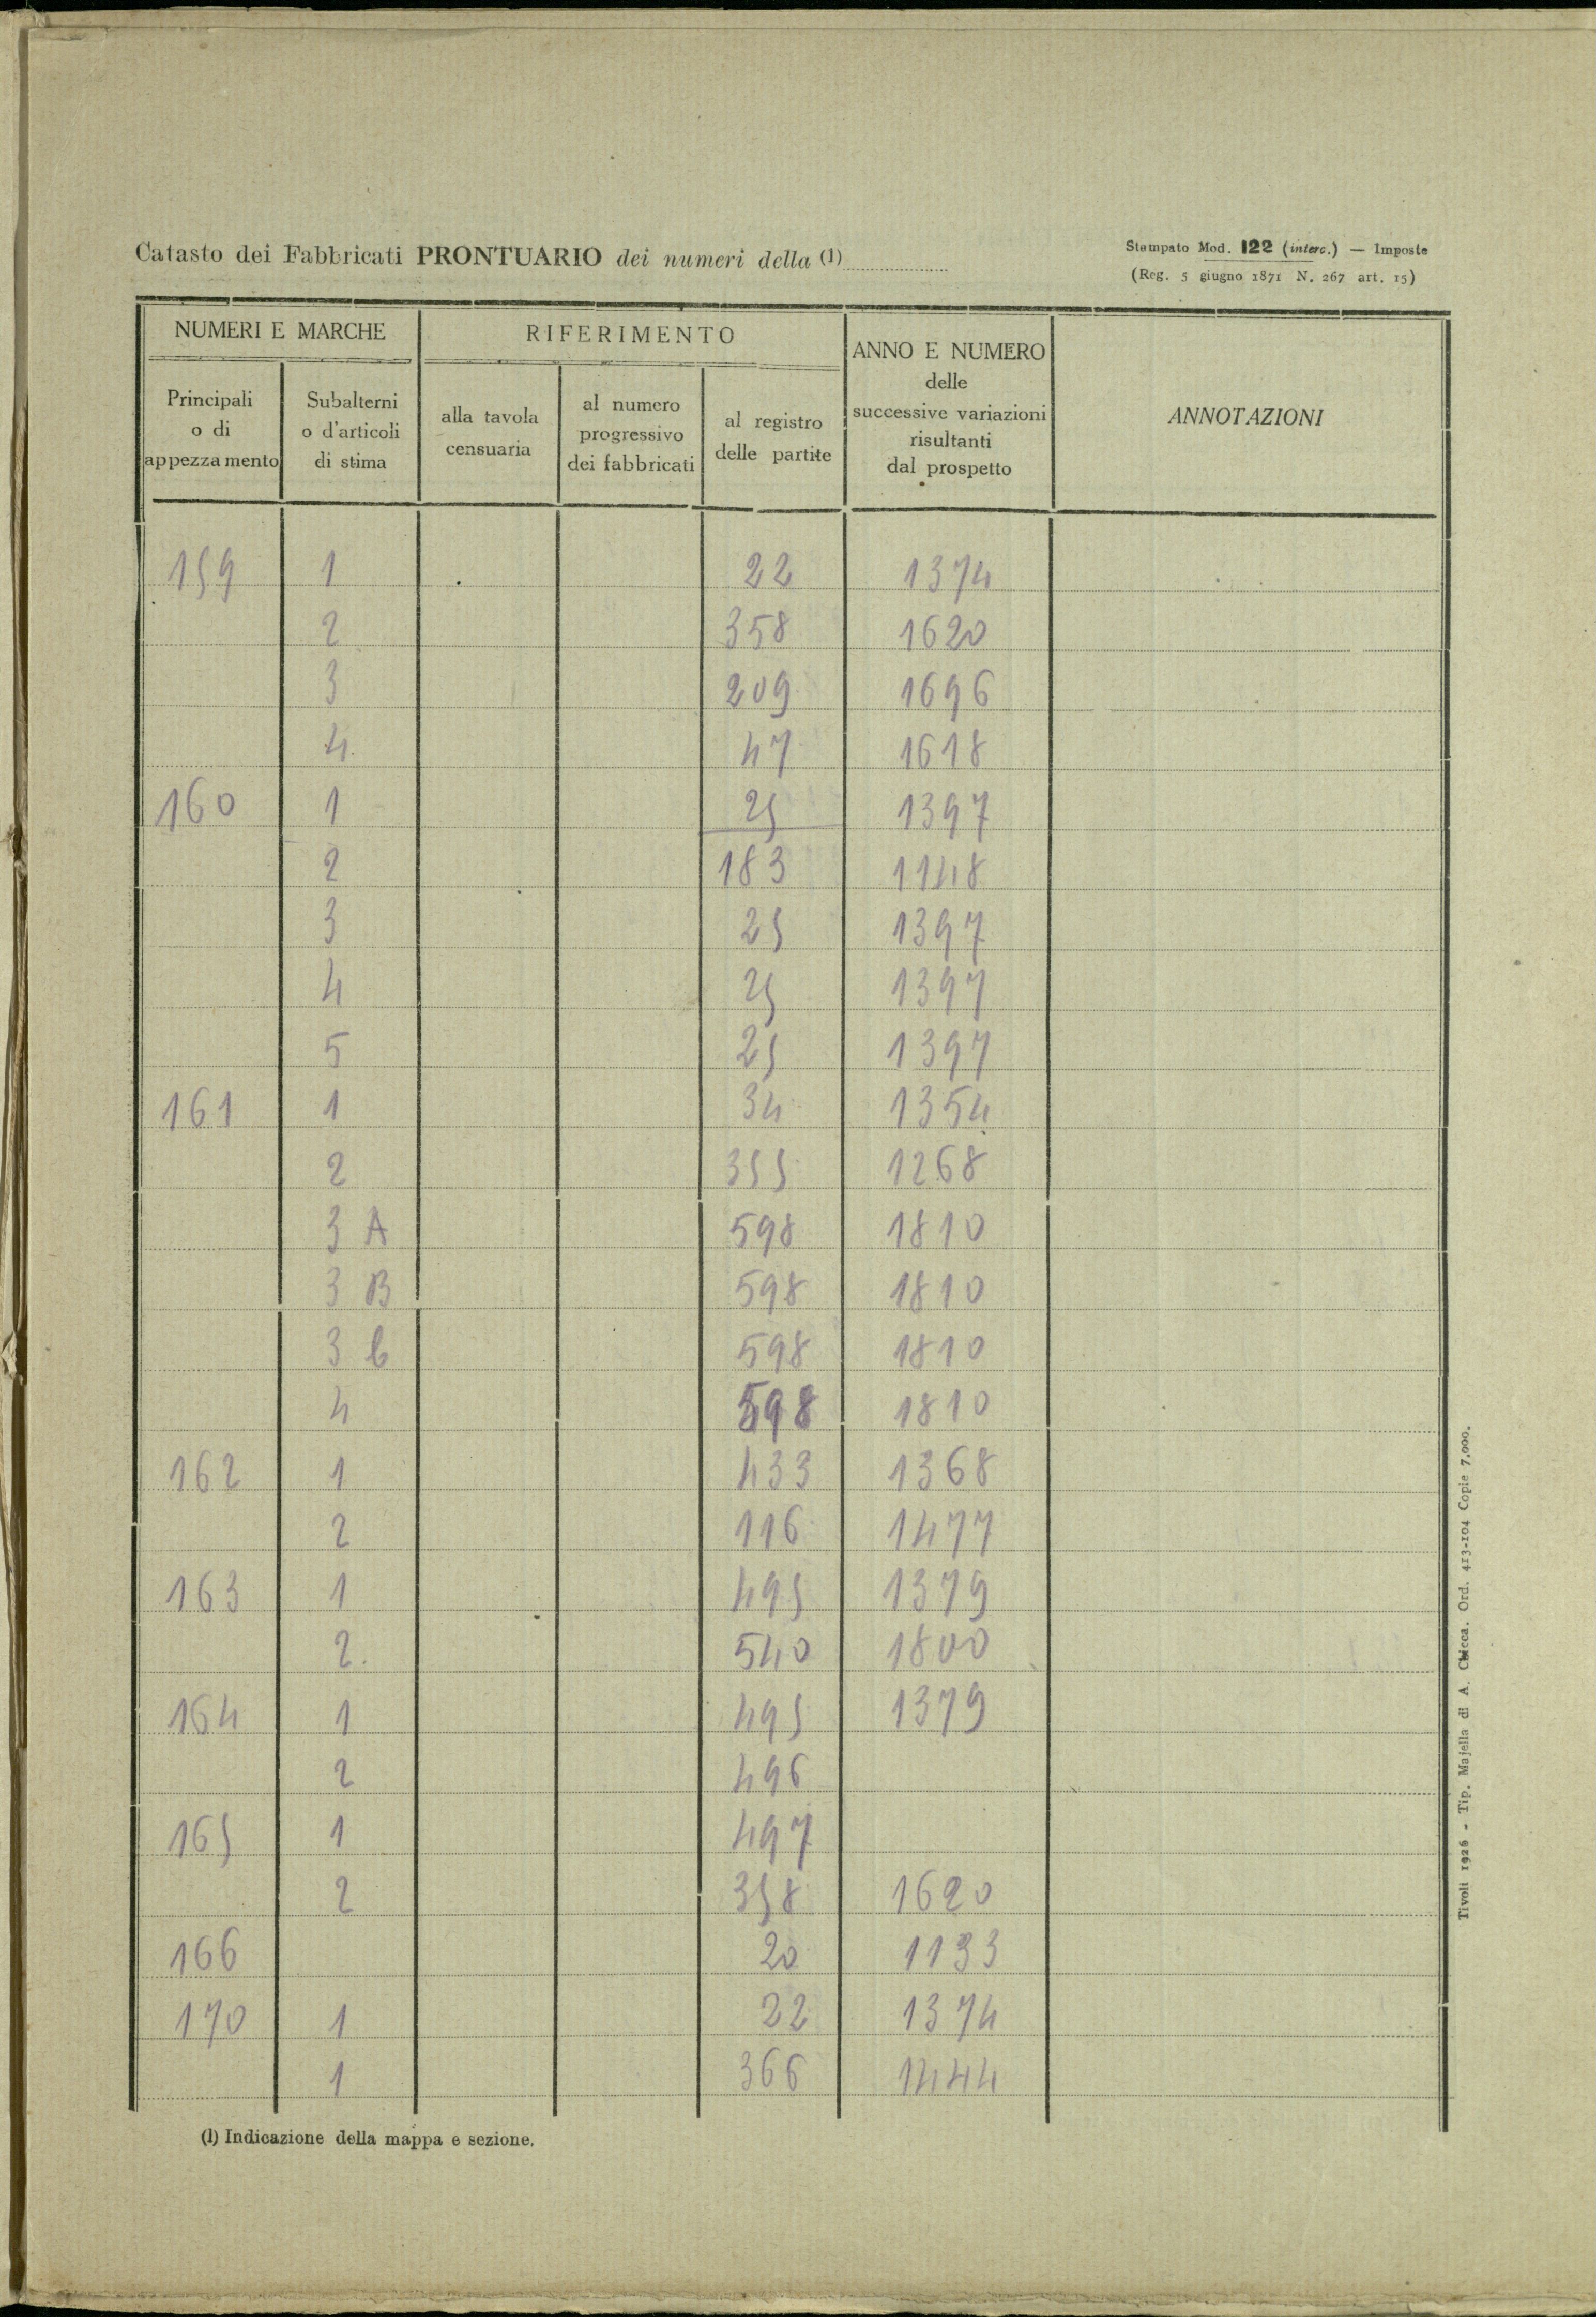 Catasto dei Fabbricati PRONTUARIO dei numeri della (1)
Stampato Mod. 122 (interc.) — Imposte
(Reg. 5 giugno 1871 N. 267 art. 15)
NUMERI E MARCHE
RIFERIMENTO
ANNO E NUMERO
delle
successive variazioni
risultanti
dal prospetto
ANNOTAZIONI
Principali
o di
appezzamento
Subalterni
o d'articoli
di stima
alla tavola
censuaria
al numero
progressivo
dei fabbricati
al registro
delle partite
159 1 22 1374
2 358 1620
3 209 1696
4 47 1618
160 1 25 1397
2 183 1148
3 25 1397
4 25 1397
5 25 1397
161 1 34 1354
2 355 1268
3 A 598 1810
3 B 598 1810
3 C 598 1810
4 598 1810
162 1 433 1368
2 116 1477
163 1 495 1379
2 540 1800
164 1 495 1379
2 496
165 1 497
2 358 1620
166 20 1133
170 1 22 1374
1 366 1444
(1) Indicazione della mappa e sezione.
Tivoli 1926 - Tip. Majella di A. Chicca. Ord. 413-104 Copie 7.000.